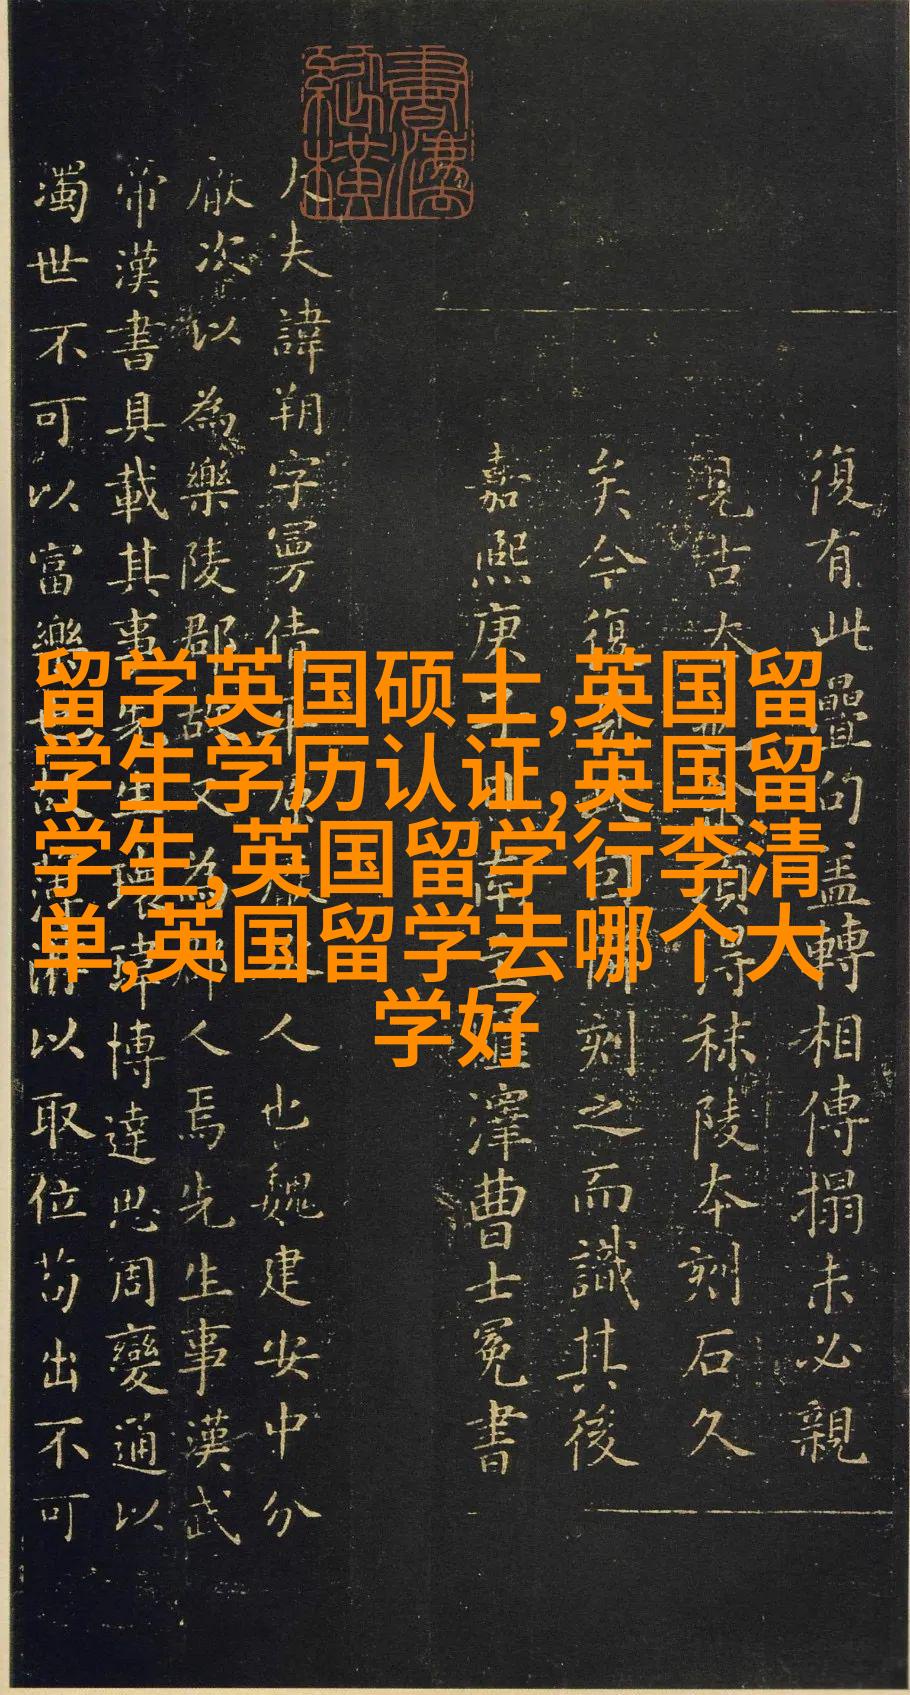 留学英国硕士,英国留
学生学历认证,英国留
学生,英国留学行李清
单,英国留学去哪个大
学好
復有此疊句蓋轉相傳搨未必親
見古本 秣陵本刻石久
矣今復 刻之而識其後
嘉熙庚子 南 澤曹士冕書
大夫諱朔字曼倩平原厭次人也魏建安中分
厭次以為樂陵郡故又為郡人焉先生事漢武
帝漢書具載其事先生瓌瑋博達思周變通以
濁世不可以富樂也故薄游以取位苟出不可